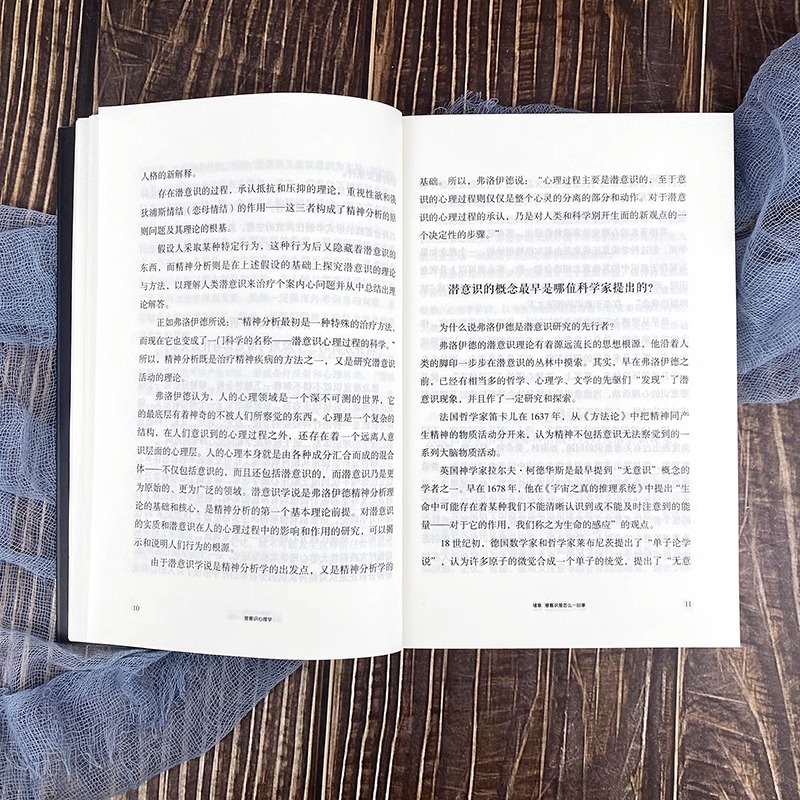 人格的新解释。
存在潜意识的过程，承认抵抗和压抑的理论，重视性欲和俄
狄浦斯情结（恋母情结）的作用——这三者构成了精神分析的原
则问题及其理论的根基。
假设人采取某种特定行为，这种行为后又隐藏着潜意识的
东西，而精神分析则是在上述假设的基础上探究潜意识的理论
与方法，以理解人类潜意识来治疗个案内心问题并从中总结出理
论解答。
正如弗洛伊德所说：“精神分析最初是一种特殊的治疗方法，
而现在它也变成了一门科学的名称——潜意识心理过程的科学。”
所以，精神分析既是治疗精神疾病的方法之一，又是研究潜意识
活动的理论。
弗洛伊德认为，人的心理领域是一个深不可测的世界，它
的最底层有着神奇的不被人们所察觉的东西。心理是一个复杂的
结构，在人们意识到的心理过程之外，还存在着一个远离人意
识层面的心理层。人的心理本身就是由各种成分汇合而成的混合
体——不仅包括意识的，而且还包括潜意识的，而潜意识乃是更
为原始的、更为广泛的领域。潜意识学说是弗洛伊德精神分析理
论的基础和核心，是精神分析的第一个基本理论前提。对潜意识
的实质和潜意识在人的心理过程中的影响和作用的研究，可以揭
示和说明人们行为的根源。
由于潜意识学说是精神分析学的出发点，又是精神分析学的
10
潜意识心理学
基础。所以，弗洛伊德说：“心理过程主要是潜意识的，至于意
识的心理过程则仅仅是整个心灵的分离的部分和动作。对于潜意
识的心理过程的承认，乃是对人类和科学别开生面的新观点的一
个决定性的步骤。”
潜意识的概念最早是哪值科学家提出的？
为什么说弗洛伊德是潜意识研究的先行者？
弗洛伊德的潜意识理论有着源远流长的思想根源，他沿着人
类的脚印一步步在潜意识的丛林中摸索。其实，早在弗洛伊德之
前，已经有相当多的哲学、心理学、文学的先驱们“发现”了潜
意识现象，并且作了一定研究和探索。
法国哲学家笛卡儿在 1637 年，从《方法论》中把精神同产
生精神的物质活动分开来，认为精神不包括意识无法察觉到的一
系列大脑物质活动。
英国神学家拉尔夫·柯德华斯是最早提到“无意识”概念的
学者之一。早在 1678 年，他在《宇宙之真的推理系统》中提出“生
命中可能存在着某种我们不能清晰认识到或不能及时注意到的能
量——对于它的作用，我们称之为生命的感应”的观点。
18 世纪初，德国数学家和哲学家莱布尼茨提出了“单子论学
说”，认为许多原子的微觉合成一个单子的统觉，提出了“无意
绪章 潜意识是怎么一回事
11